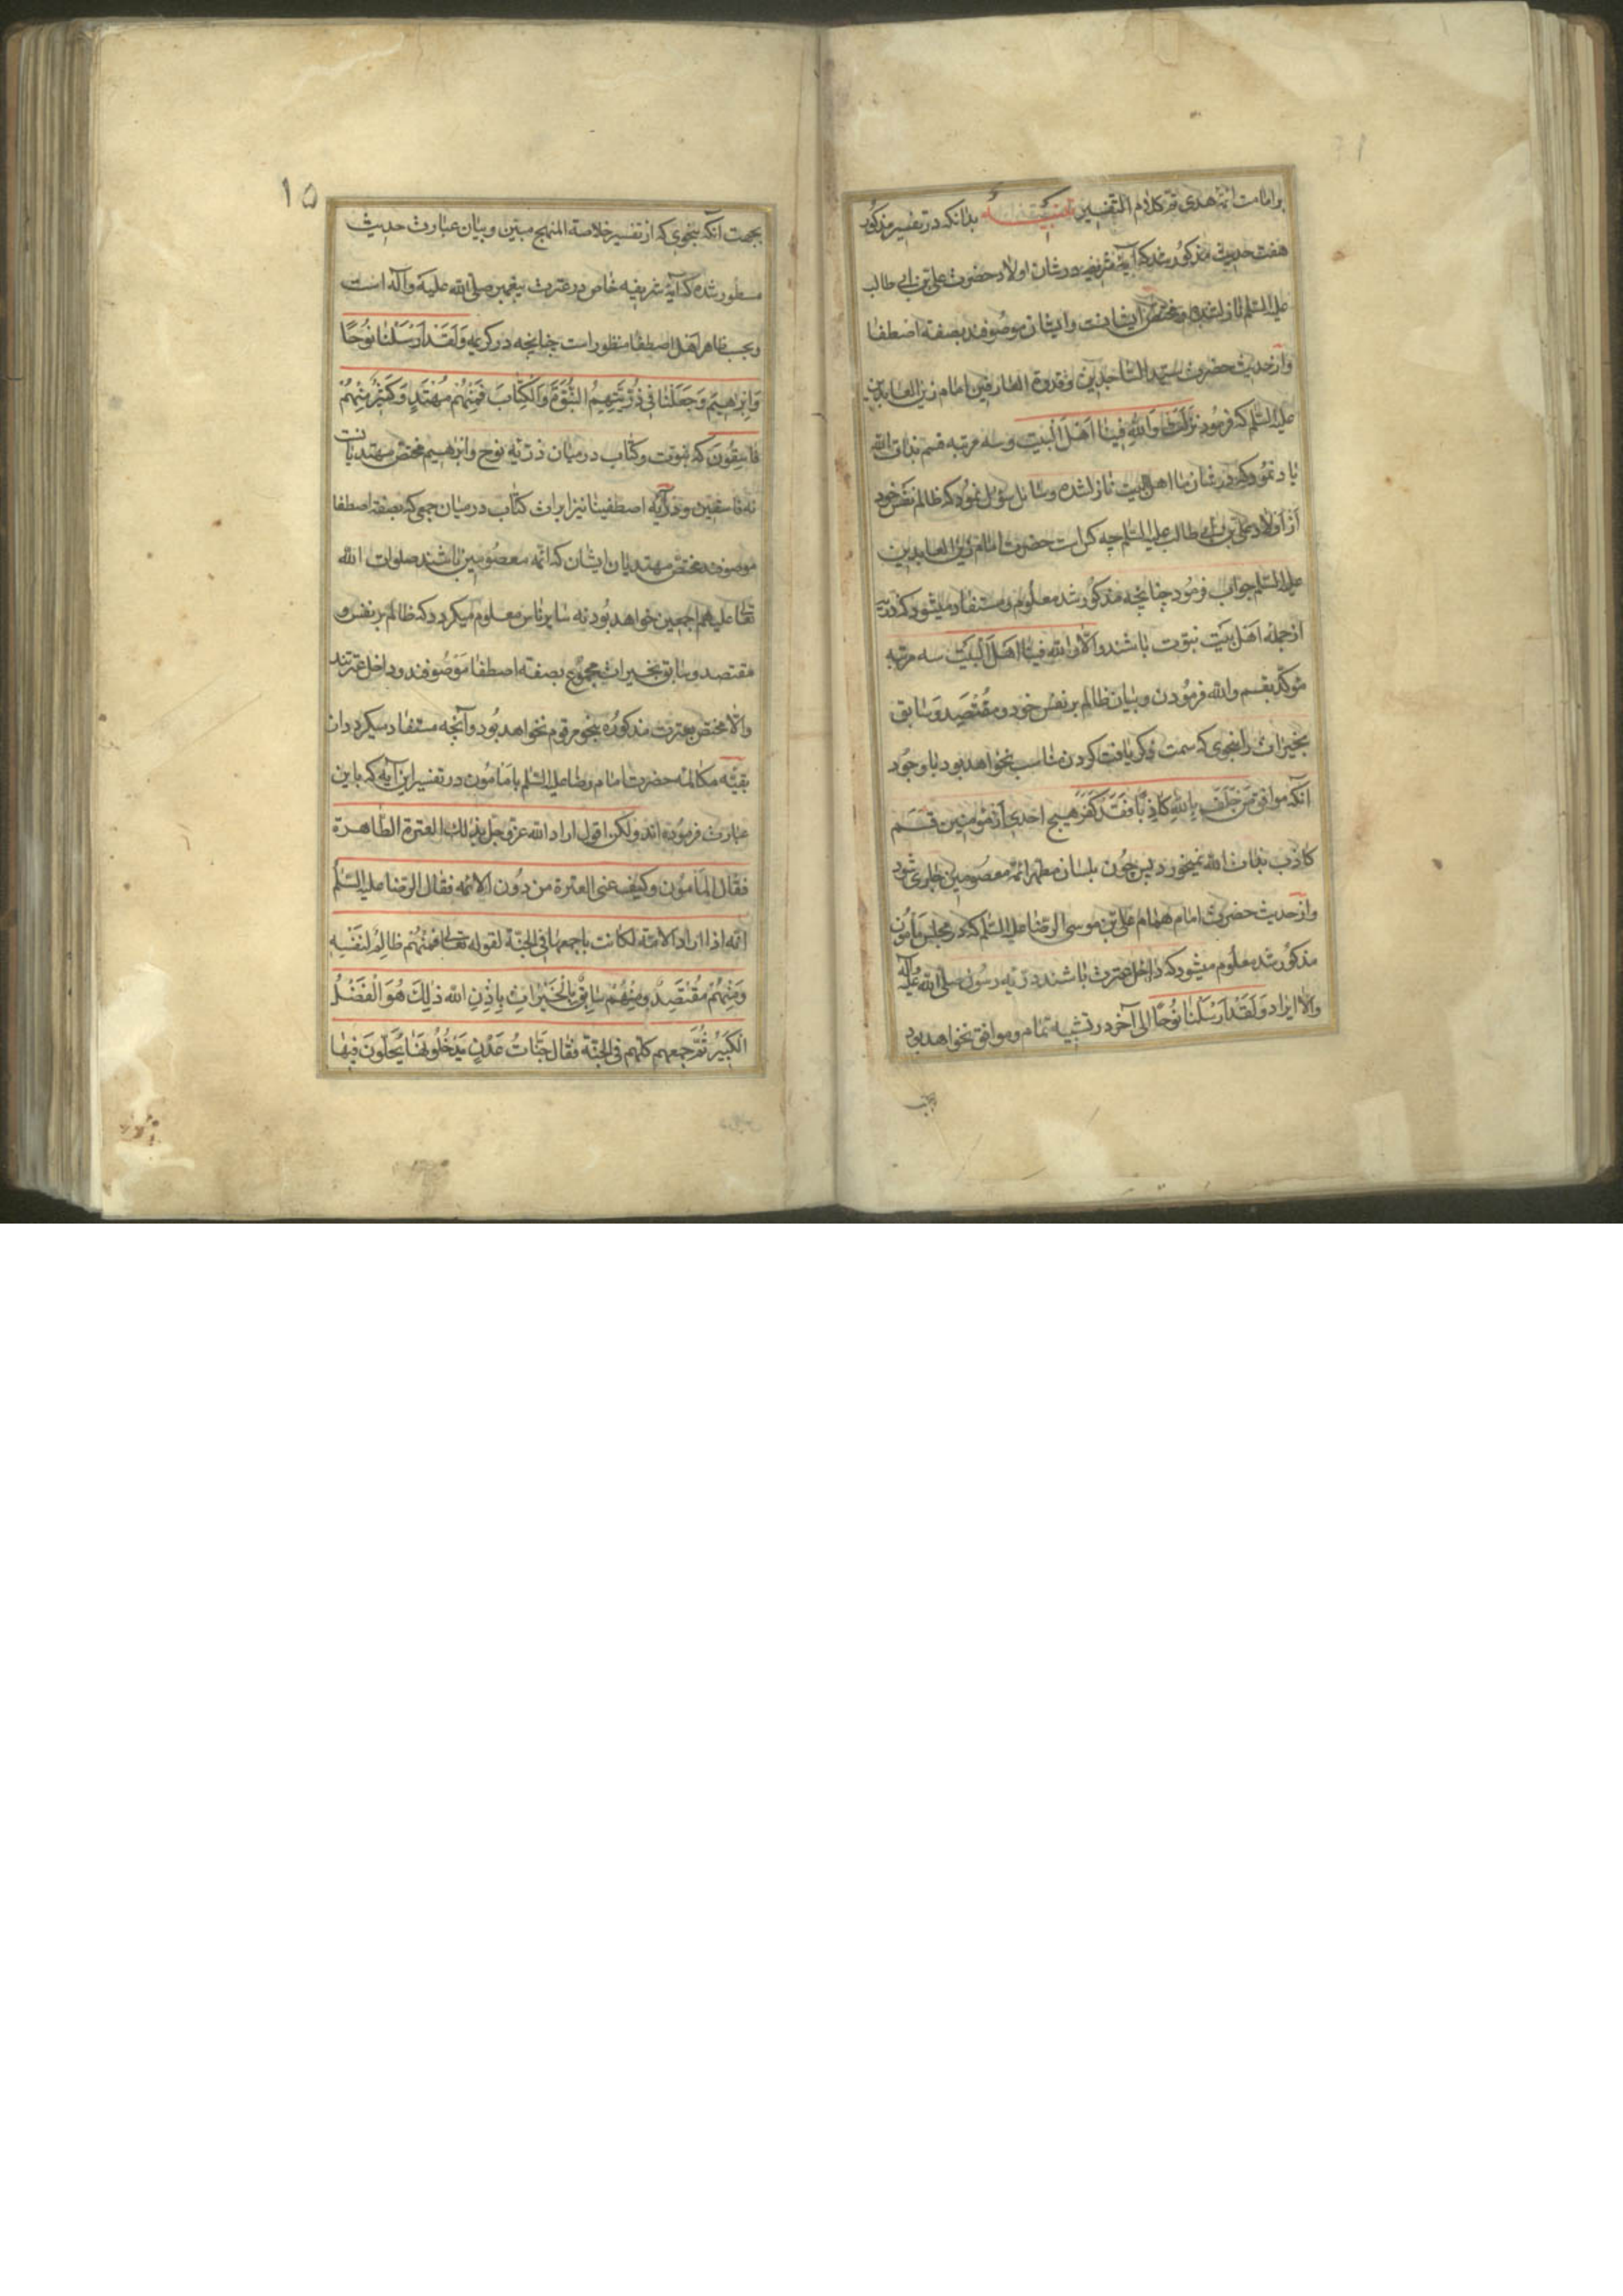 بر امامت ائمه هدی من کلام المتقنین بدانکه در تفسیر مذکور
هفت حدیث مذکور شد که آیهٔ شریفه در شان اولاد حضرت علی بن ابی طالب
علیه السلم نازلشده و مختص ایشانست و ایشان موصوفند بصفة اصطفا
و از حدیث حضرت سید الساجدین و قدوة العارفین امام زین العابدین
علیه السلم که فرمود نزلت والله فینا اهل البیت و سه مرتبه قسم بذات الله
یاد نمود که در شان ما اهل البیت نازلشده و سائل سؤل نمود که ظالم نفس خود
از اولاد علی بن ابی طالب علیه السلم چه کس است حضرت امام زین العابدین
علیه السلم جواب فرمود چنانچه مذکور شد معلوم و مستفاد میشود که
از جمله اهل بیت نبوت باشند و الا والله فینا اهل البیت سه مرتبه
مؤکد بقسم والله فرمودن و بیان ظالم بر نفس خود و مقتصد و سابق
بخیرات را بنحوی که سمت ذکر یافت کردن مناسب نخواهد بود با وجود
آنکه موافق من حلف بالله کاذبا فقد کفر هیچ احدی از مؤمنین قسم
کاذب بذات الله نمیخورد پس چون بلسان مطهر ائمه معصومین جاری شود
و از حدیث حضرت امام همام علی بن موسی الرضا علیه السلم که در مجلس مامون
مذکور شد معلوم میشود که داخل عترت باشند ذریه رسول صلی الله علیه وآله
والا ایراد ولقد ارسلنا نوحا الی آخر در تشبیه تمام و موافق نخواهد بود
بجهت
۱۵
بجهت آنکه بنحوی که از تفسیر خلاصة المنهج مبین و بیان عبارت حدیث
مسطور شده که آیهٔ شریفه خاص در عترت پیغمبر صلی الله علیه وآله است
و بحسب ظاهر اهل اصطفا منظور است چنانچه در کریمه وَلَقَدْ اَرْسَلْنَا نُوحًا
وَاِبْرٰهِيمَ وَجَعَلْنَا فِي ذُرِّيَّتِهِمَا النُّبُوَّةَ وَالْكِتَابَ فَمِنْهُمْ مُهْتَدٍ وَكَثِيرٌ مِنْهُمْ
فَاسِقُونَ که نبوت و کتاب در میان ذریه نوح و ابرهیم مختص مهتدیانست
نه فاسقین و در آیه اصطفینا نیز ایراث کتاب در میان جمعی که بصفة اصطفا
موصوفند مختص مهتدیان ایشان که ائمه معصومین باشند صلوات الله
تعالی علیهم اجمعین خواهد بود نه سایر ناس معلوم میگردد که ظالم بر نفس و
مقتصد و سابق بخیرات مجموع بصفة اصطفا موصوفند و داخل عترتند
والا مختص بعترت مذکوره بنحو مرقوم نخواهد بود و آنچه مستفاد میگردد از
بقیه مکالمه حضرت امام رضا علیه السلم با مامون در تفسیر این آیه که باین
عبارت فرموده اند ولکن اقول اراد الله عز وجل بذلك العترة الطاهرة
فقال المامون وکیف عنی العترة من دون الامه فقال الرضا علیه السلم
انه اذا اراد الامة لکانت باجمعها فی الجنة لقوله تعالی فمنهم ظالم لنفسه
وَمِنْهُمْ مُقْتَصِدٌ وَمِنْهُمْ سَابِقٌ بِالْخَيْرَاتِ بِاِذْنِ اللّٰهِ ذٰلِكَ هُوَ الْفَضْلُ
الْكَبِيرُ ثُمَّ جمعهم کلهم فی الجنة فقال جَنَّاتُ عَدْنٍ يَدْخُلُونَهَا يُحَلَّوْنَ فِيهَا